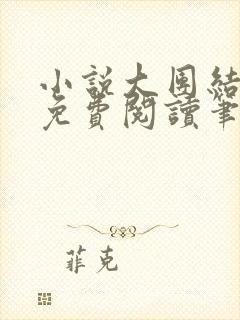 小說大團結
免費閱讀筆
菲克